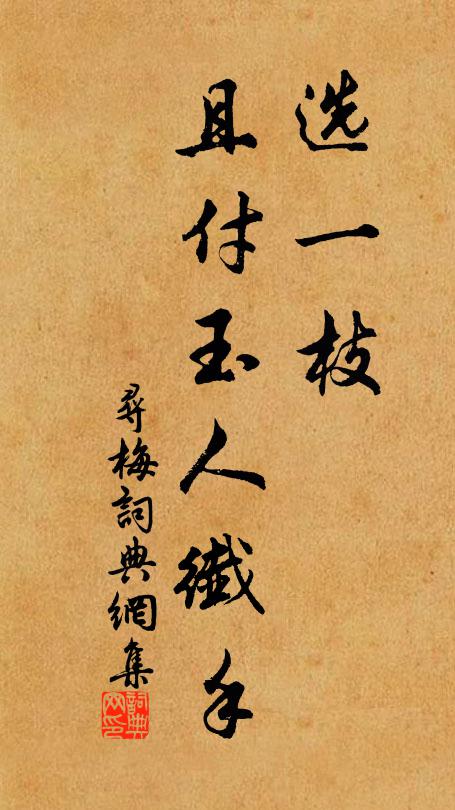 选一枝
且付玉人纖手
尋梅詞典網集
詞典
网印